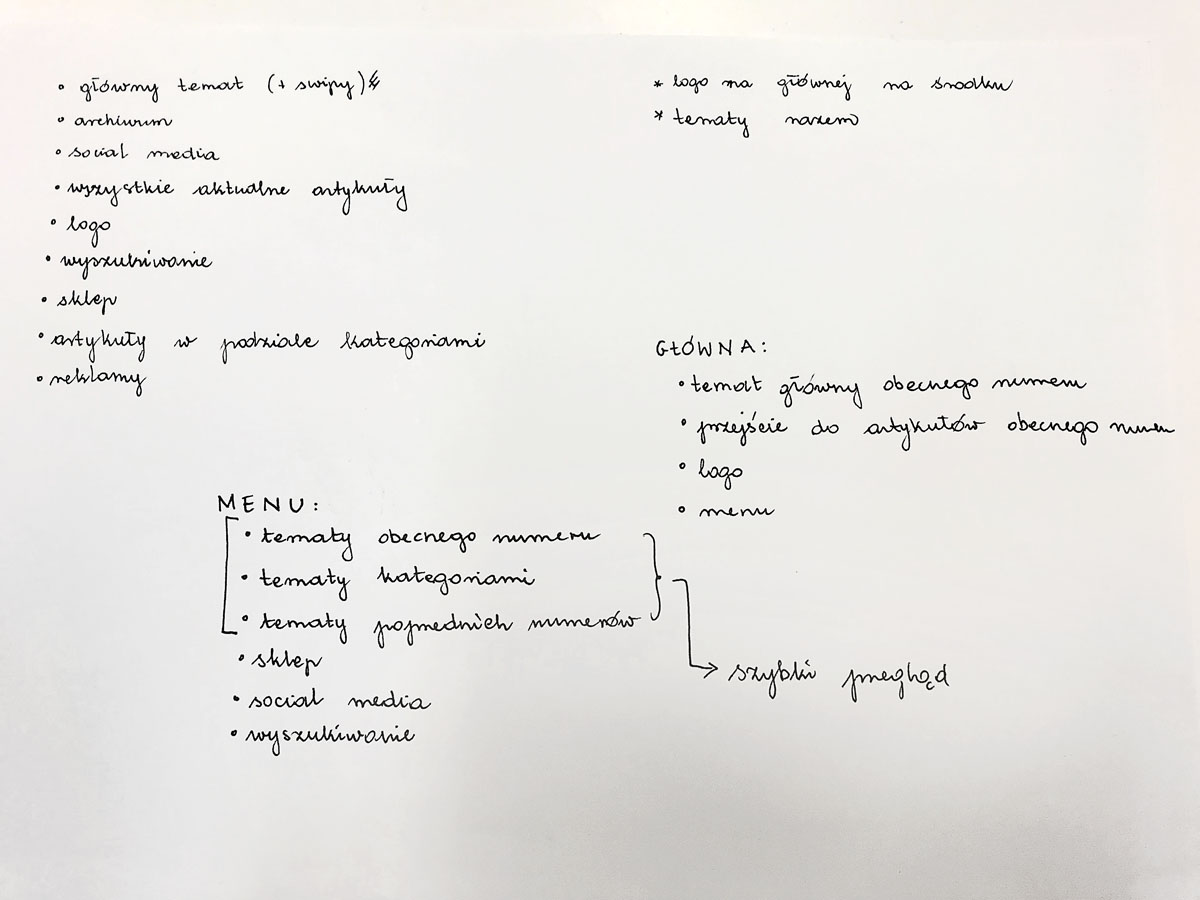 • główny temat (+ swipy)
• archiwum
• social media
• wszystkie aktualne artykuły
• logo
• wyszukiwanie
• sklep
• artykuły w podziale kategoriami
• reklamy
* logo na głównej na środku
* tematy razem
GŁÓWNA:
• temat główny obecnego numeru
• przejście do artykułów obecnego numeru
• logo
• menu
MENU:
• tematy obecnego numeru
• tematy kategoriami
• tematy poprzednich numerów
• sklep
• social media
• wyszukiwanie
→ szybki przegląd